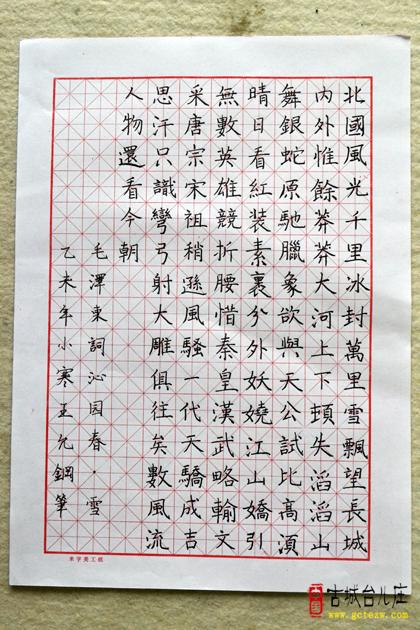 北國風光千里冰封萬里雪飄望長城
内外惟餘莽莽大河上下頭失滔滔山
舞銀蛇原馳臘象欲與天公試比高須
晴日看紅装素裹分外妖嬈江山嬌引
無數英雄競折腰惜秦皇漢武略輸文
采唐宗宋祖稍遜風騷一代天驕成吉
思汗只識彎弓射大雕俱往矣數風流
人物還看今朝
毛澤東詞沁园春 雪
乙未年小寒王允鋼筆
米字美工紙
中国
古城台儿庄
www.gctezw.com